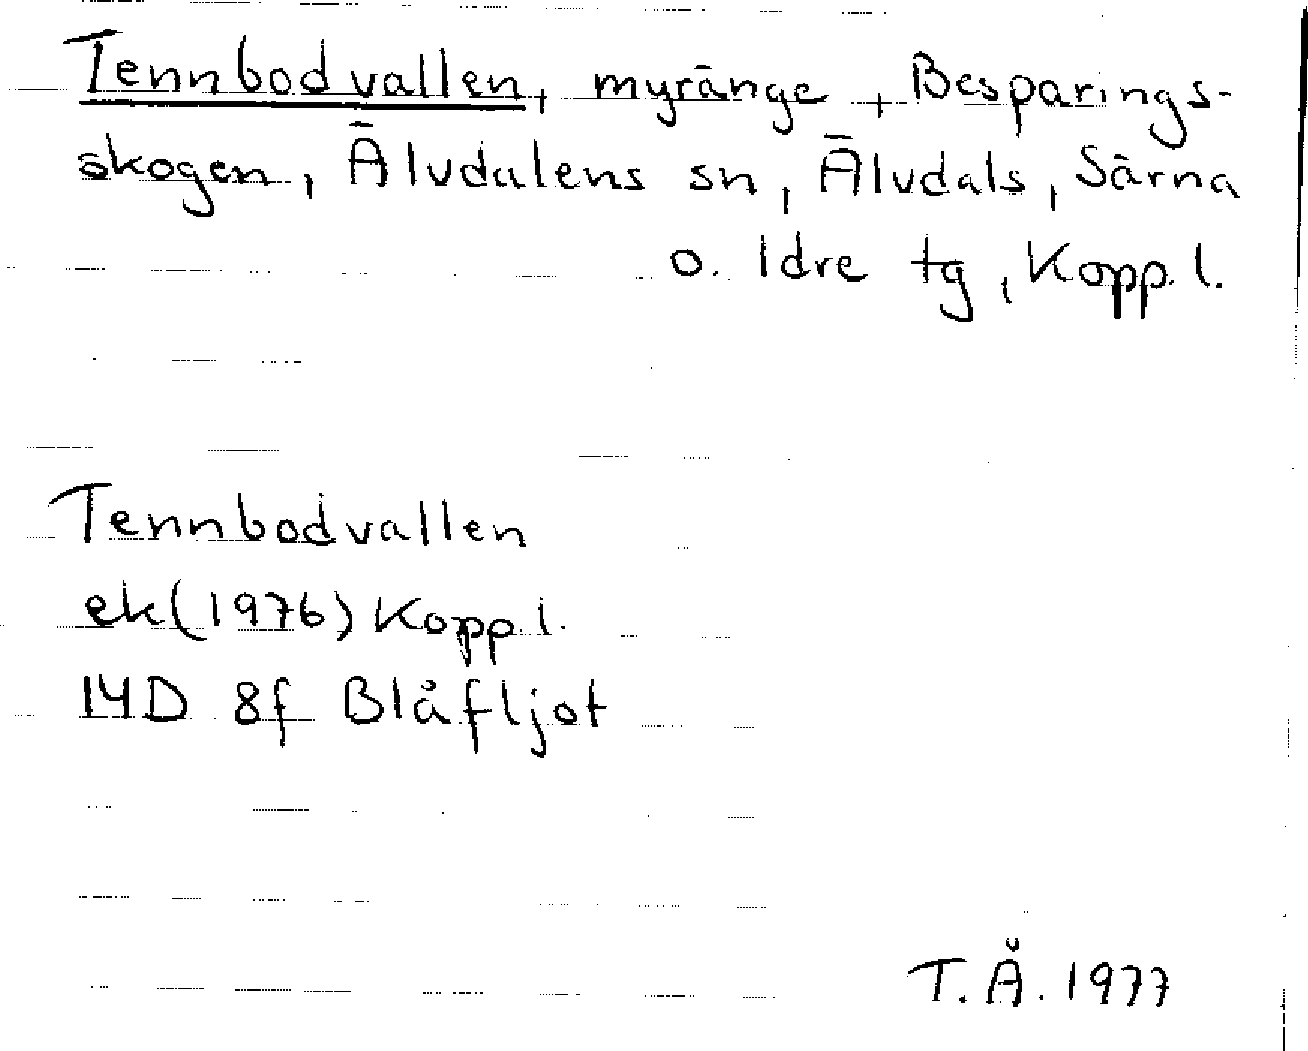 Tennbodvallen, myränge, Besparings-
skogen, Älvdalens sn, Älvdals, Särna
o. Idre tg, Kopp. l.
Tennbodvallen
ek(1976) Kopp. l.
14D 8f Blåfljot
T. Å. 1977